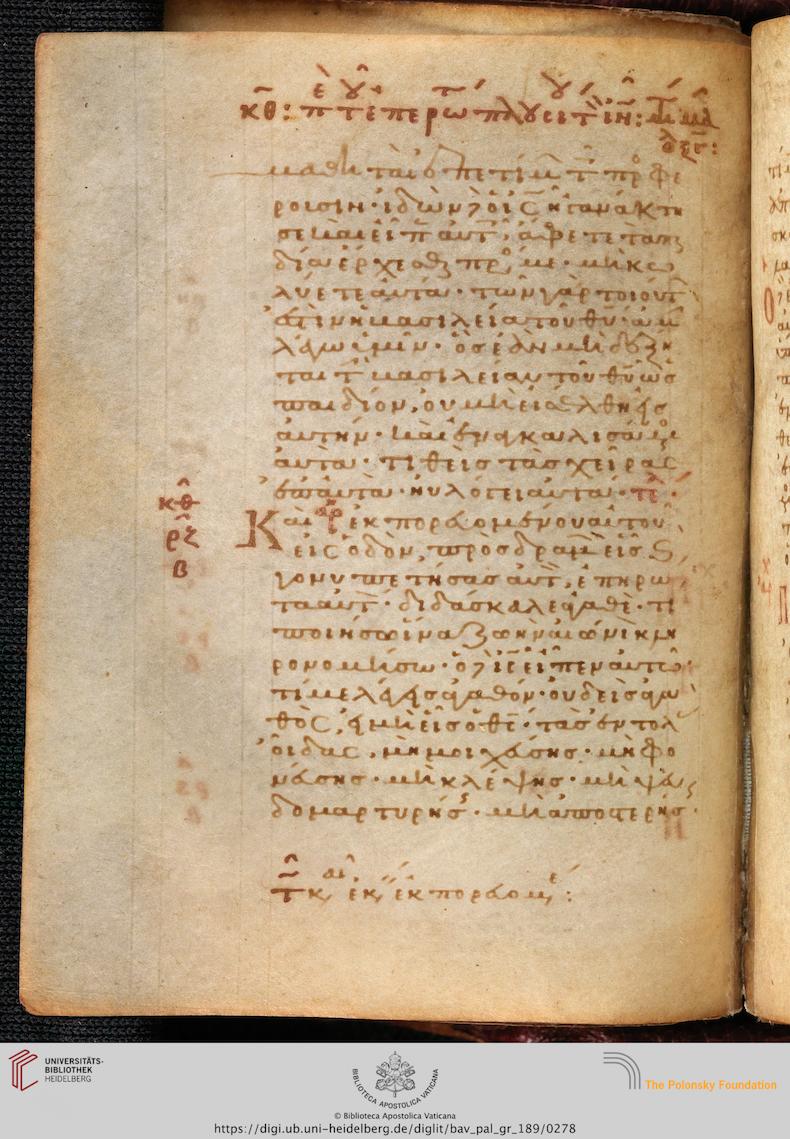 μαθηταὶ ἐπετίμ τ προσφε
ρουσιν· ἰδὼν δὲ ὁ ις ἠγανάκτη
σε καὶ εἶπ αὐτ, ἄφετε τὰ παι
δία ἔρχεσθαι πρός με· μὴ κω
λύετε αὐτά· τῶν γὰρ τοιούτ
ἐστὶν ἡ βασιλεία τοῦ θυ· ἀμ
λέγω ὑμῖν· ὃς ἐὰν μὴ δέξη
ται τ βασιλείαν τοῦ θυ ὡς
παιδίον, οὐ μὴ εἰσέλθη εἰς
αὐτήν· καὶ ἐναγκαλισάμε
αὐτά· τιθεὶς τὰς χεῖρας
ἐπ αὐτὰ· ηυλόγει αὐτά· τε
κθ
ρζ
β
Καὶ ἐκπορευομένου αὐτοῦ
εἰς ὁδὸν, προσδραμ εἷς κ
γονυπετήσας αὐτ, ἐπηρώ
τα αὐτ· διδάσκαλε ἀγαθὲ· τί
ποιήσω ἵνα ζωὴν αἰώνι κλη
ρονομήσω· ὁ δὲ ις εἶπεν αὐτῶ·
τί με λέγεις ἀγαθόν· οὐδεὶς ἀγα
θὸς, εἰ μὴ εἷς ὁ θς· τὰς ἐντολ
οἶδας, μὴ μοιχεύσης· μὴ φο
νεύσης· μὴ κλέψης· μὴ ψευ
δομαρτυρήσης· μὴ ἀποστερήσ·
UNIVERSITÄTS-
BIBLIOTHEK
HEIDELBERG
BIBLIOTECA APOSTOLICA VATICANA
The Polonsky Foundation
© Biblioteca Apostolica Vaticana
https://digi.ub.uni-heidelberg.de/diglit/bav_pal_gr_189/0278